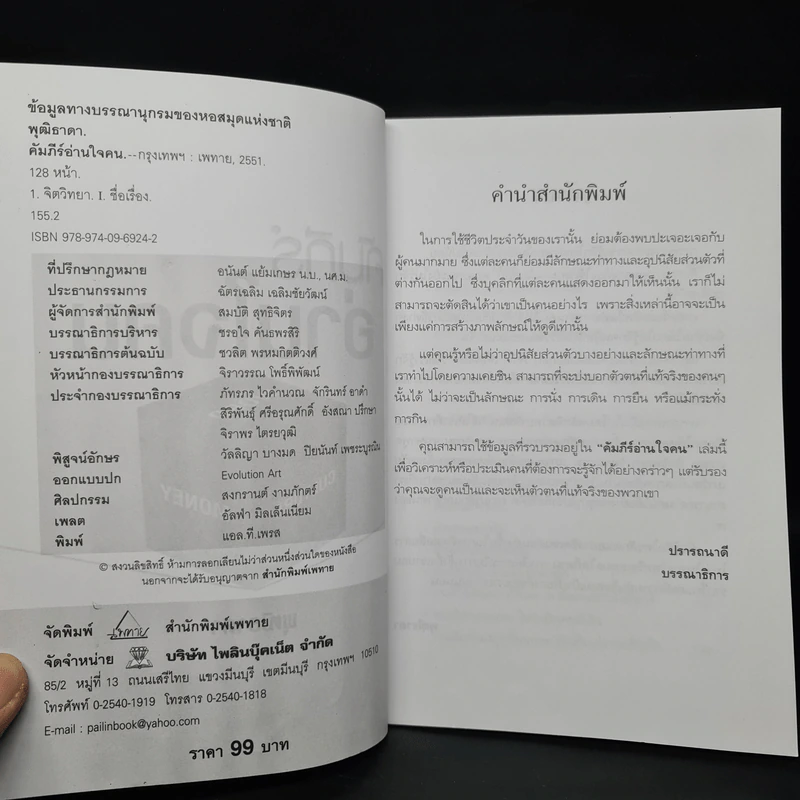 ข้อมูลทางบรรณานุกรมของหอสมุดแห่งชาติ
พุฒิธาดา.
คัมภีร์อ่านใจคน.--กรุงเทพฯ : เพทาย, 2551.
128 หน้า.
1. จิตวิทยา. I. ชื่อเรื่อง.
155.2
ISBN 978-974-09-6924-2
ที่ปรึกษากฎหมาย อนันต์ แย้มเกษร น.บ., นศ.ม.
ประธานกรรมการ ฉัตรเฉลิม เฉลิมชัยวัฒน์
ผู้จัดการสำนักพิมพ์ สมบัติ สุทธิจิตร
บรรณาธิการบริหาร ชรอใจ คันธพรสิริ
บรรณาธิการต้นฉบับ ชวลิต พรหมกิตติวงศ์
หัวหน้ากองบรรณาธิการ จิราวรรณ โพธิ์พิพัฒน์
ประจำกองบรรณาธิการ ภัทรภร ไวคำนวณ จักรินทร์ อาดำ
สิริพันธุ์ ศรีอรุณศักดิ์ อังสณา ปรึกษา
จิราพร ไตรยวุฒิ
พิสูจน์อักษร วัลลิญา บางมด ปิยนันท์ เพชระบูรณิน
ออกแบบปก Evolution Art
ศิลปกรรม สงกรานต์ งามภักตร์
เพลต อัลฟ่า มิลเล็นเนียม
พิมพ์ แอล.ที.เพรส
© สงวนลิขสิทธิ์ ห้ามการลอกเลียนไม่ว่าส่วนหนึ่งส่วนใดของหนังสือ
นอกจากจะได้รับอนุญาตจาก สำนักพิมพ์เพทาย
จัดพิมพ์ เพทาย สำนักพิมพ์เพทาย
จัดจำหน่าย บริษัท ไพลินบุ๊คเน็ต จำกัด
85/2 หมู่ที่ 13 ถนนเสรีไทย แขวงมีนบุรี เขตมีนบุรี กรุงเทพฯ 10510
โทรศัพท์ 0-2540-1919 โทรสาร 0-2540-1818
E-mail : pailinbook@yahoo.com
ราคา 99 บาท
คำนำสำนักพิมพ์
ในการใช้ชีวิตประจำวันของเรานั้น ย่อมต้องพบปะเจอะเจอกับ
ผู้คนมากมาย ซึ่งแต่ละคนก็ย่อมมีลักษณะท่าทางและอุปนิสัยส่วนตัวที่
ต่างกันออกไป ซึ่งบุคลิกที่แต่ละคนแสดงออกมาให้เห็นนั้น เราก็ไม่
สามารถจะตัดสินได้ว่าเขาเป็นคนอย่างไร เพราะสิ่งเหล่านี้อาจจะเป็น
เพียงแค่การสร้างภาพลักษณ์ให้ดูดีเท่านั้น
แต่คุณรู้หรือไม่ว่าอุปนิสัยส่วนตัวบางอย่างและลักษณะท่าทางที่
เราทำไปโดยความเคยชิน สามารถที่จะบ่งบอกตัวตนที่แท้จริงของคนๆ
นั้นได้ ไม่ว่าจะเป็นลักษณะ การนั่ง การเดิน การยืน หรือแม้กระทั่ง
การกิน
คุณสามารถใช้ข้อมูลที่รวบรวมอยู่ใน “คัมภีร์อ่านใจคน” เล่มนี้
เพื่อวิเคราะห์หรือประเมินคนที่ต้องการจะรู้จักได้อย่างคร่าวๆ แต่รับรอง
ว่าคุณจะดูคนเป็นและจะเห็นตัวตนที่แท้จริงของพวกเขา
ปรารถนาดี
บรรณาธิการ